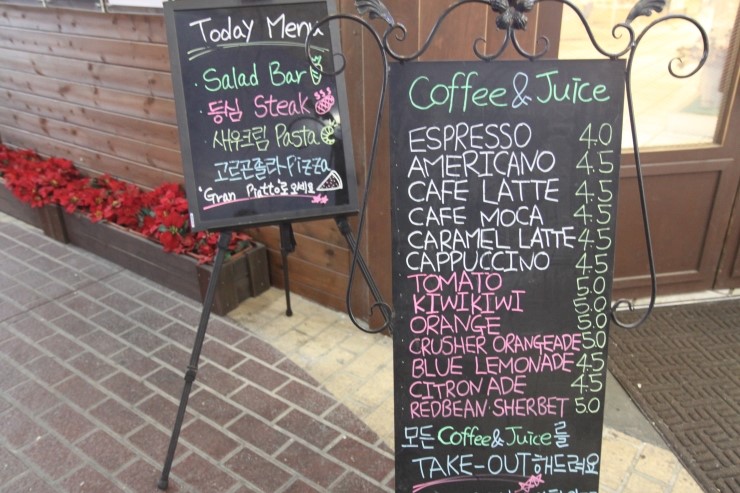 Today Menu
· Salad Bar
· 등심 Steak
· 새우크림 Pasta
· 고르곤졸라 Pizza
"Gran Piatto로 오세요
Coffee & Juice
ESPRESSO 4.0
AMERICANO 4.5
CAFE LATTE 4.5
CAFE MOCA 4.5
CARAMEL LATTE 4.5
CAPPUCCINO 4.5
TOMATO 5.0
KIWIKIWI 5.0
ORANGE 5.0
CRUSHER ORANGEADE 5.0
BLUE LEMONADE 4.5
CITRON ADE 4.5
REDBEAN SHERBET 5.0
모든 Coffee & Juice를
TAKE-OUT해드려요